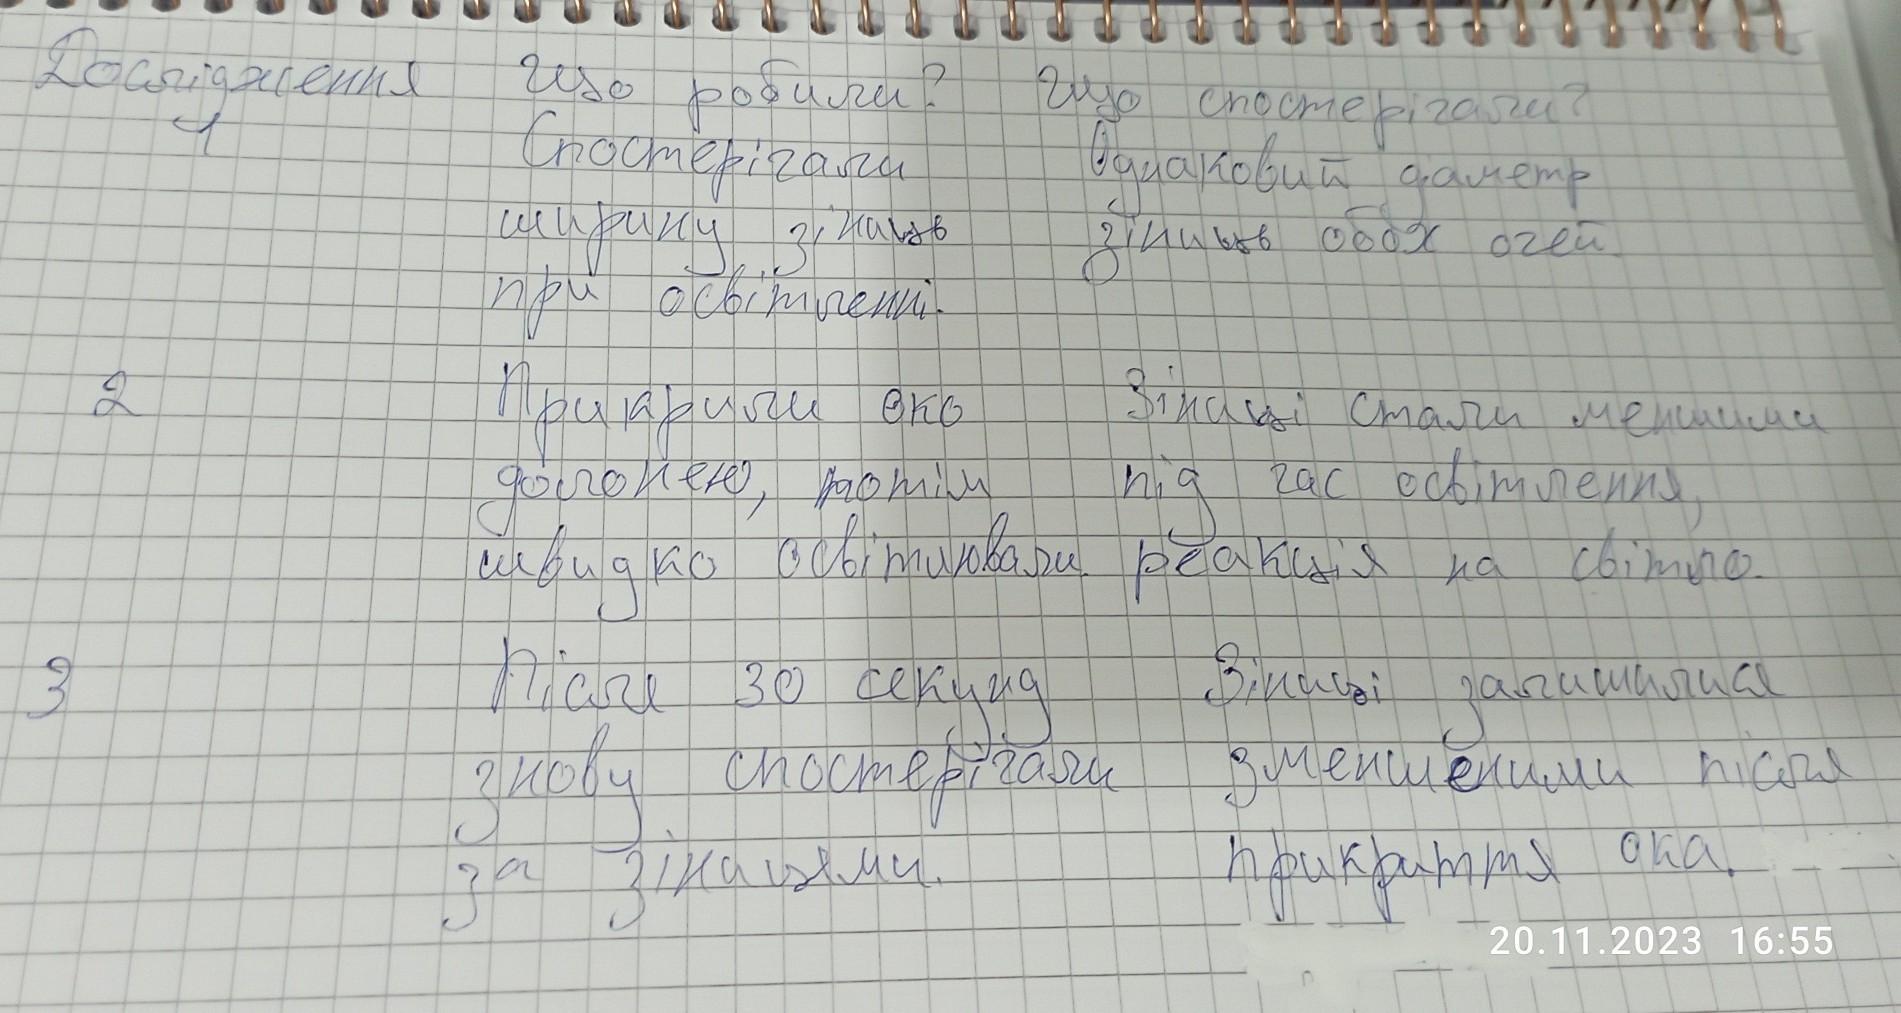 Дослідження Що робили? Що спостерігали?
1 Спостерігали Однаковий даметр
ширину зіниць зіниць обох очей
при освітленні.
2 Прикрили око Зіниці стали меншими
долонею, потім під час освітлення,
швидко освітлювали. реакція на світло.
3 Після 30 секунд Зіниці залишилися
знову спостерігали зменшеними після
за зіницями. прикриття ока.
20.11.2023 16:55